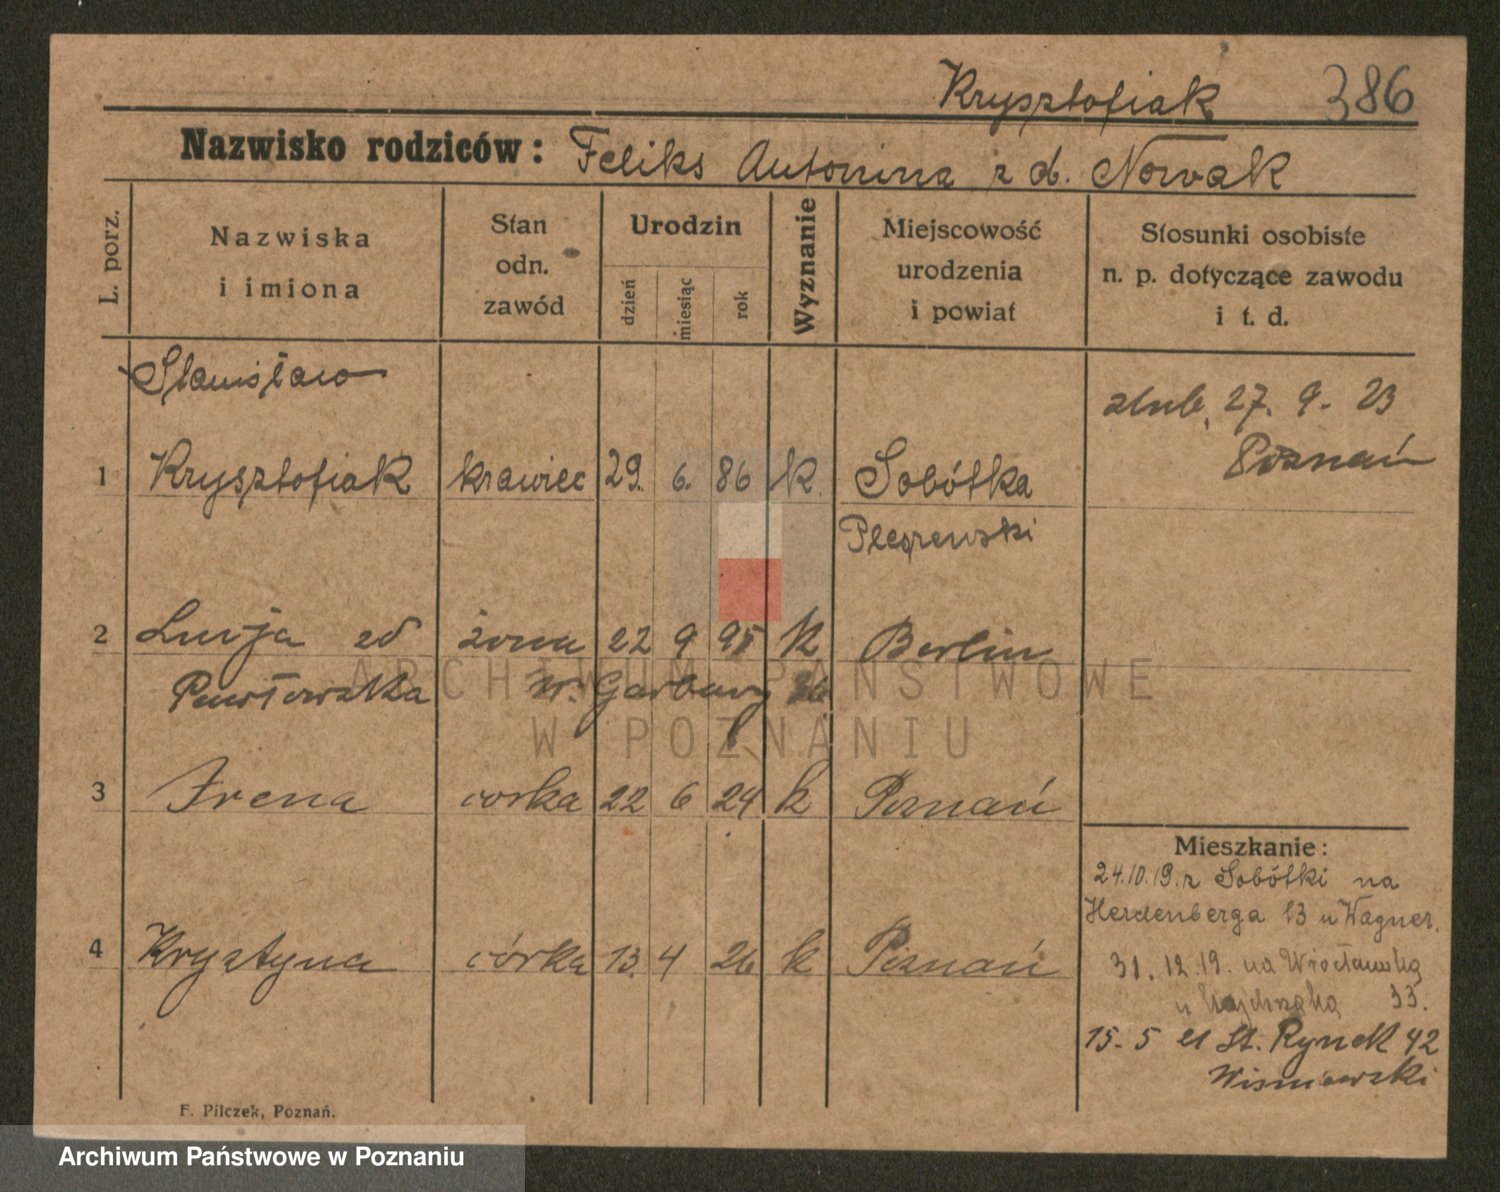 Krysztofiak 386
Nazwisko rodziców: Feliks Antonina z d. Nowak
L. porz.
Nazwiska
i imiona
Stan
odn.
zawód
Urodzin
dzień
miesiąc
rok
Wyznanie
Miejscowość
urodzenia
i powiat
Stosunki osobiste
n. p. dotyczące zawodu
i t. d.
Stanisław
ślub, 27. 9. 23
Poznań
1 Krysztofiak krawiec 29. 6. 86 k. Sobótka
Pleszewski
2 zd żona 22 9 95 k Berlin
Pawłowska W. Garbary 36
3 Irena córka 22 6 24 k Poznań
Mieszkanie:
24.10.19. z Sobótki na
Herdenberga 13 u Wagner.
4 Krystyna córka 13. 4 26 k Poznań
31. 12. 19. na Wrocławską
u 33.
15. 5 21 St. Rynek 42
Wiśniewski
F. Pilczek, Poznań.
ARCHIWUM PAŃSTWOWE
W POZNANIU
Archiwum Państwowe w Poznaniu